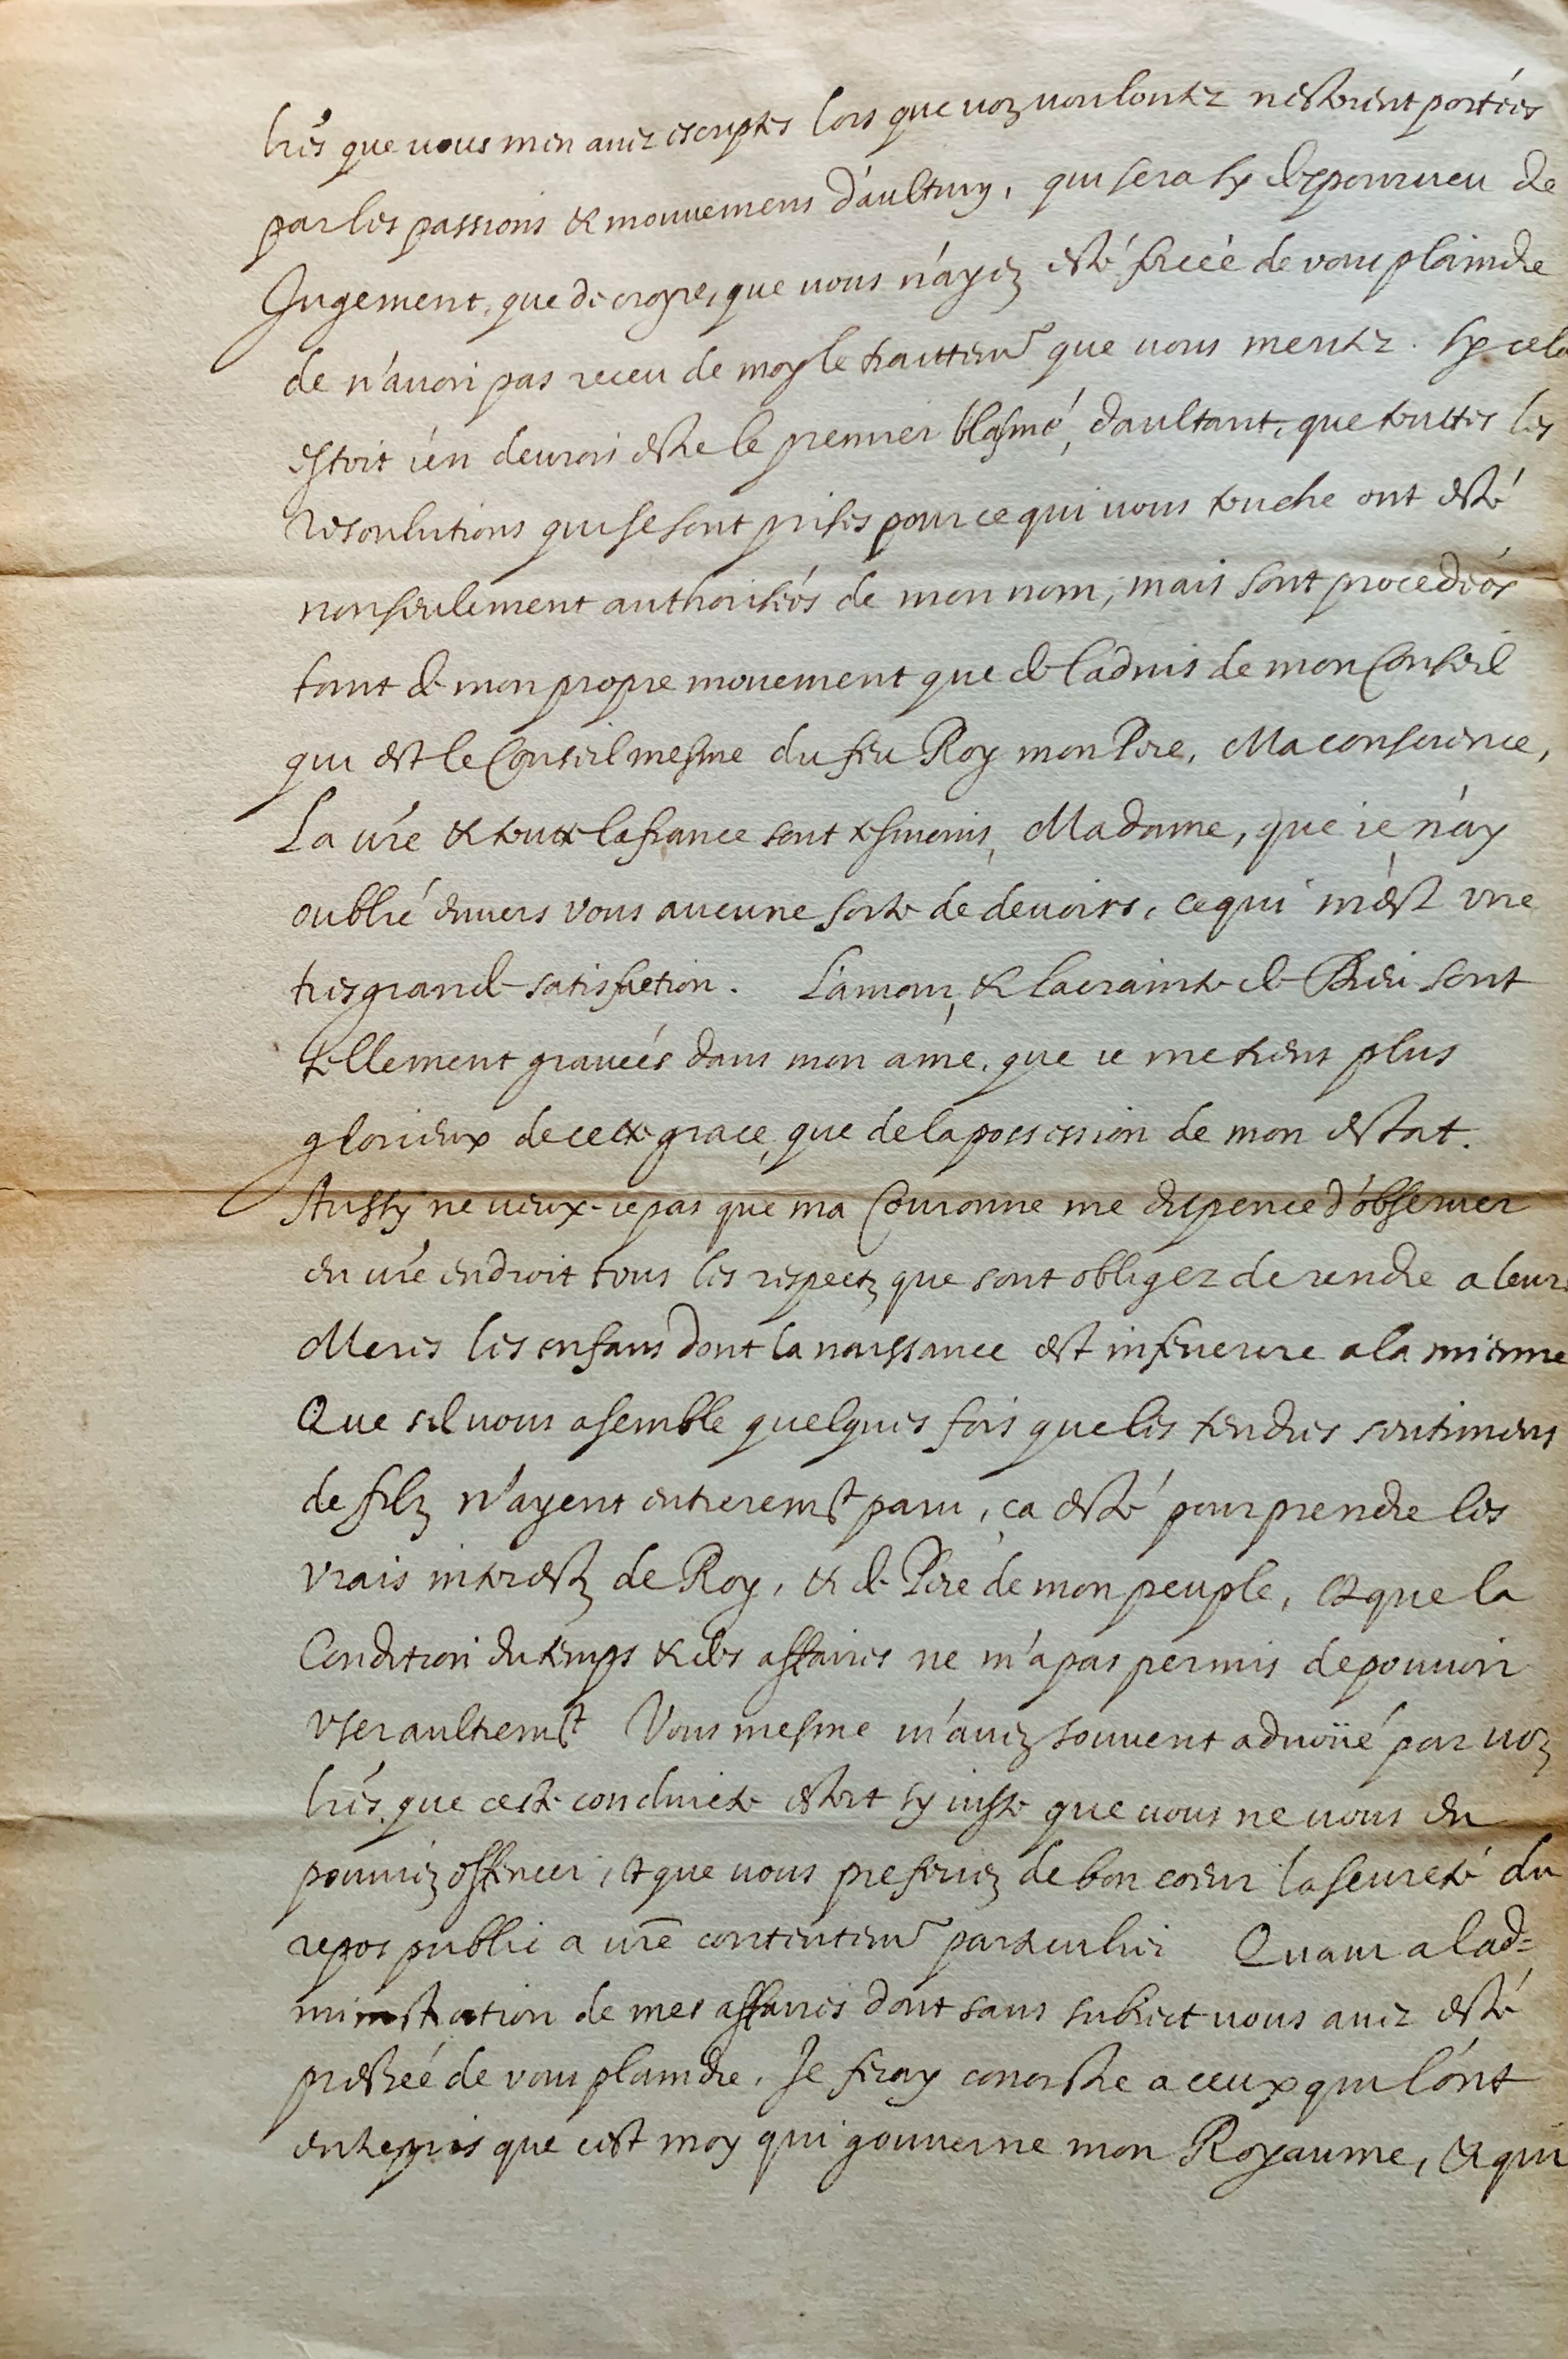 lrés que vous m'en aviez escriptes lors que voz voulontez n'estoient portées
par les passions & mouvemens d'aultruy, qui sera sy despourveu de
Jugement, que de croyre, que vous n'ayez esté forcée de vous plaindre
de n'avoir pas receu de moy le traittemt que vous meritez. Sy cela
estoit i'en devrois estre le premier blasmé, daultant, que touttes les
resoulutions qui se sont prises pour ce qui vous touche ont esté
non seulement authorisées de mon nom, mais sont procedées
tant de mon propre mouvement que de l'advis de mon Conseil
qui est le Conseil mesme du feu Roy mon Pere, Ma conscience,
La vre & toutte la france sont tesmoins, Madame, que ie n'ay
oublié envers vous aucune sorte de devoirs, ce qui m'est une
tres grande satisfaction. L'amour, & la crainte de Dieu sont
tellement gravées dans mon ame, que ie me tiens plus
glorieux de cette grace, que de la possession de mon estat.
Aussy ne veux-ie pas que ma Couronne me dispence d'observer
en vre endroit tous les respectz que sont obligez de rendre a leurs
Meres les enfans dont la naissance est inferieure a la mienne
Que s'il vous a semble quelques fois que les tendres sentimens
de filz n'ayent entieremt paru, ça esté pour prendre les
vrais interestz de Roy, & de Pere de mon peuple, & que la
Condition du temps & des affaires ne m'a pas permis de pouvoir
user aultremt Vous mesme m'avez souvent advoüé par voz
lrés, que ceste conduicte estoit sy iuste que vous ne vous en
pouviez offencer, & que vous preferiez de bon coeur la seureté du
repos public a vrē contentemt particulier Quant a l'ad=
ministration de mes affaires dont sans subiect vous avez esté
pressée de vous plaindre, Je feray conoistre a ceux qui l'ont
entrepris que c'est moy qui gouverne mon Royaume, & qui